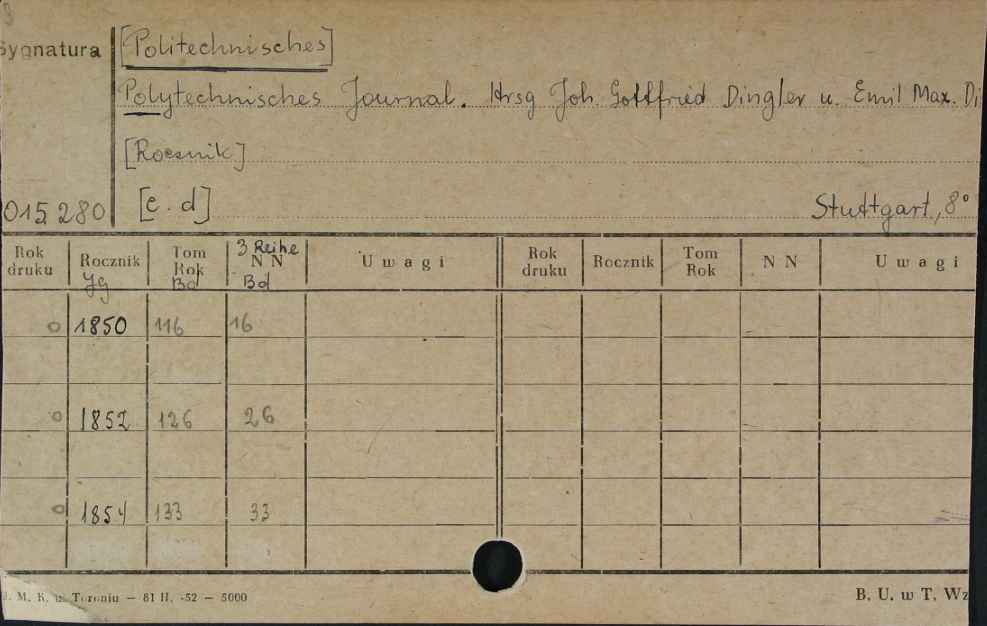 Sygnatura [Politechnisches]
Polytechnisches Journal. Hrsg Joh. Gottfried Dingler u. Emil Max. Di
[Rocznik]
015280 [c. d] Stuttgart, 8°
Rok druku Rocznik Jg Tom Rok Bd 3 Reihe N N Bd Uwagi Rok druku Rocznik Tom Rok N N Uwagi
o 1850 116 16
o 1852 126 26
o 1854 133 33
J. M. K. w Toruniu — 81 H. -52 — 5000 B. U. w T. Wz